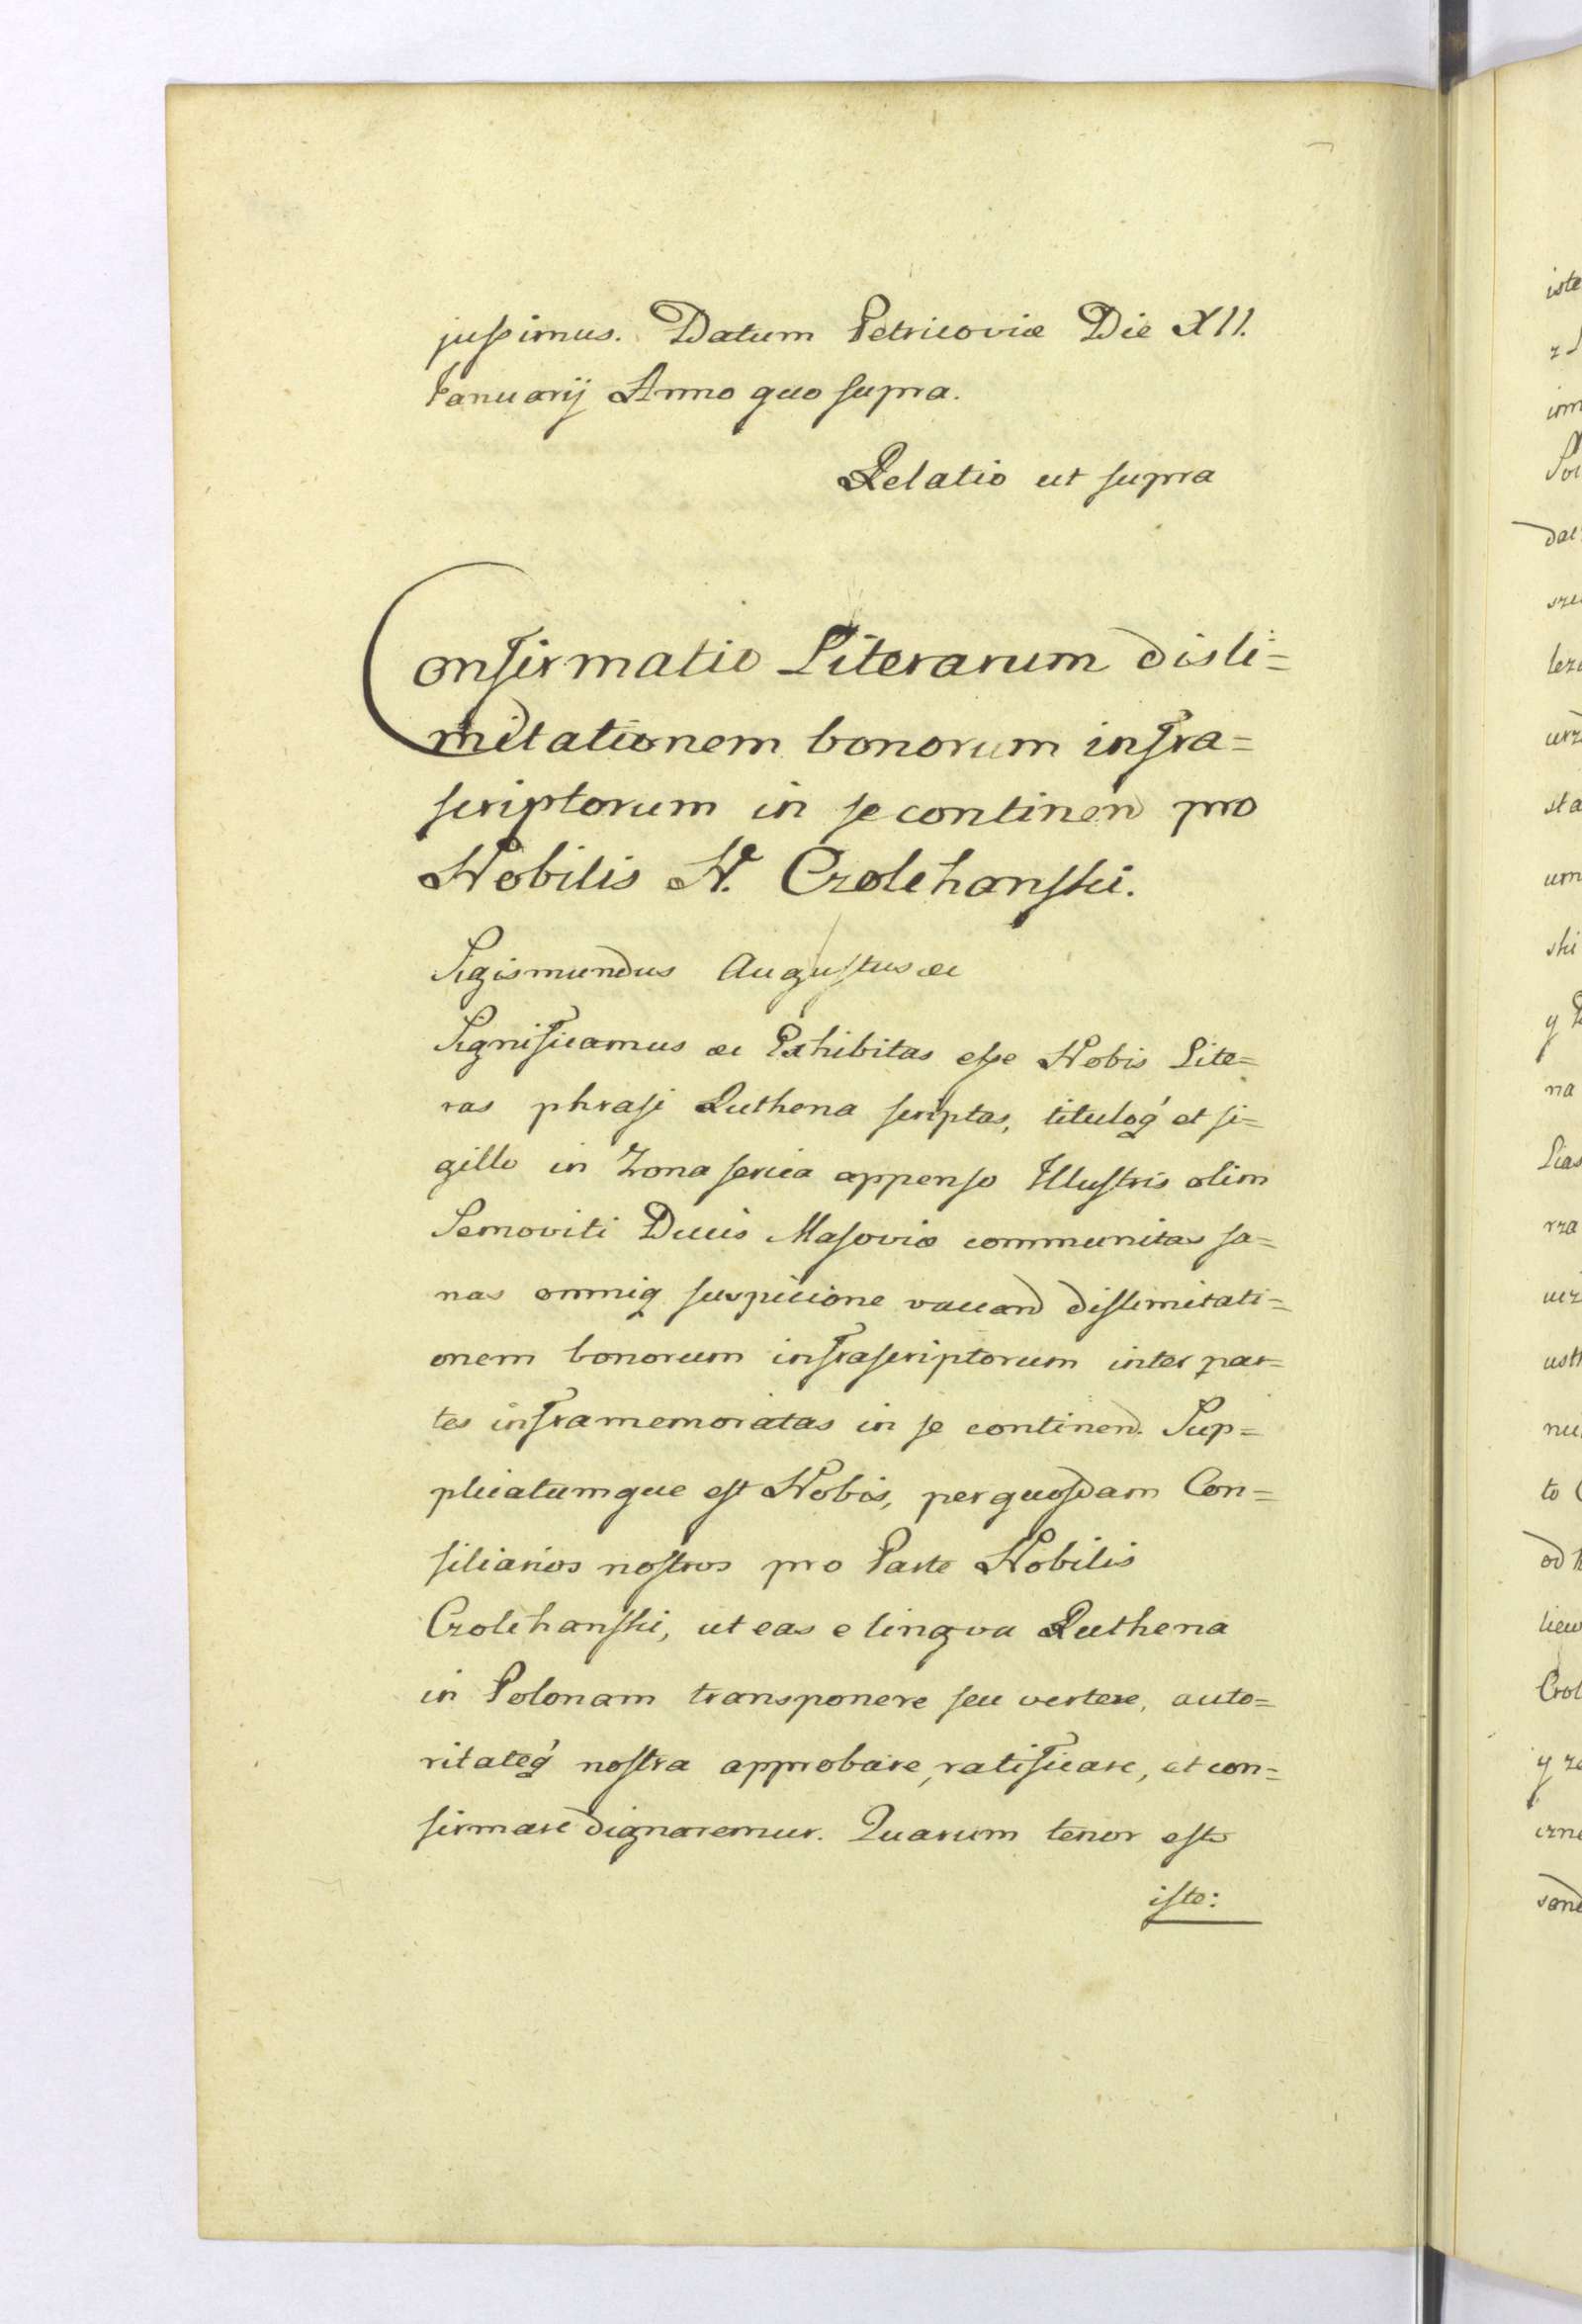 jussimus. Datum Petricoviæ Die XII.
Januarij Anno quo supra.
Relatio ut supra
Confirmatio Literarum disli=
mitationem bonorum infra=
scriptorum in se continen pro
Nobilis N. Czolchanski.
Sigismundus Augustus &c
Significamus &c Exhibitas esse Nobis Lite=
ras phrasi Ruthena scriptas, tituloq́ et si=
gillo in Zona serica appenso Illustris olim
Semoviti Ducis Masoviæ communitas sa=
nas omniq suspicione vacand dislimitati=
onem bonorum infrascriptorum inter par=
tes inframemoratas in se continend. Sup=
plicatumque est Nobis, per quosdam Con=
siliarios nostros pro Parte Nobilis
Czolchanski, ut eas e lingva Ruthena
in Polonam transponere seu vertere, auto=
ritateq́ nostra approbare, ratificare, et con=
firmare dignaremur. Quarum tenor est
iste: